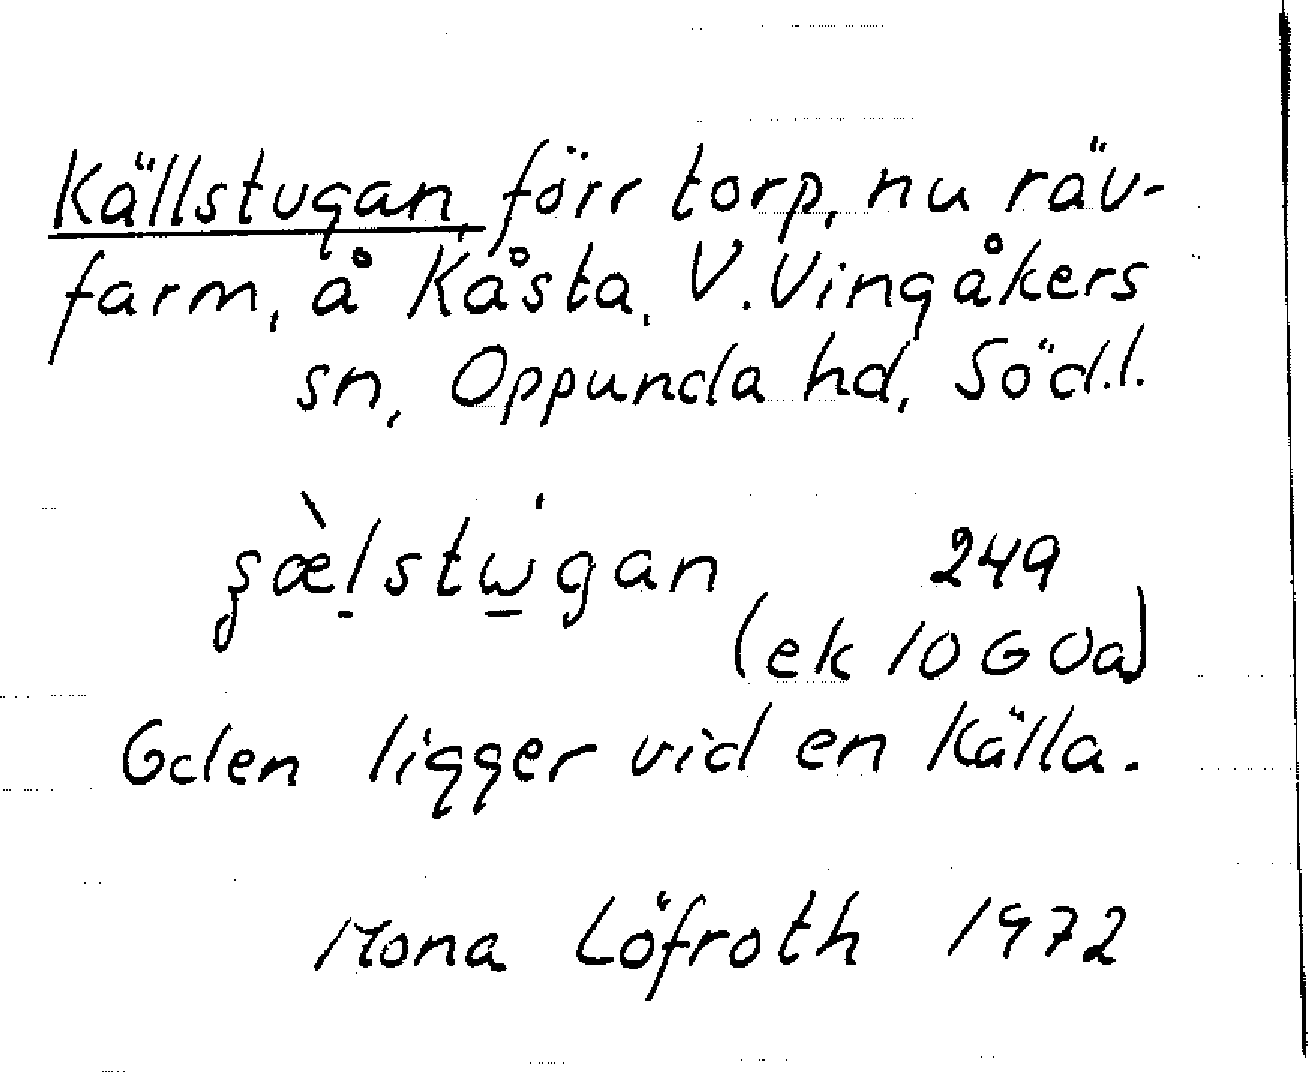 Källstugan, förr torp, nu räv-
farm, å Kåsta, V. Vingåkers
sn, Oppunda hd, Söd.l.
ʂæ̀l̠stώ̠gan 249
(ek 10 G Oa)
Gden ligger vid en källa.
Mona Löfroth 1972